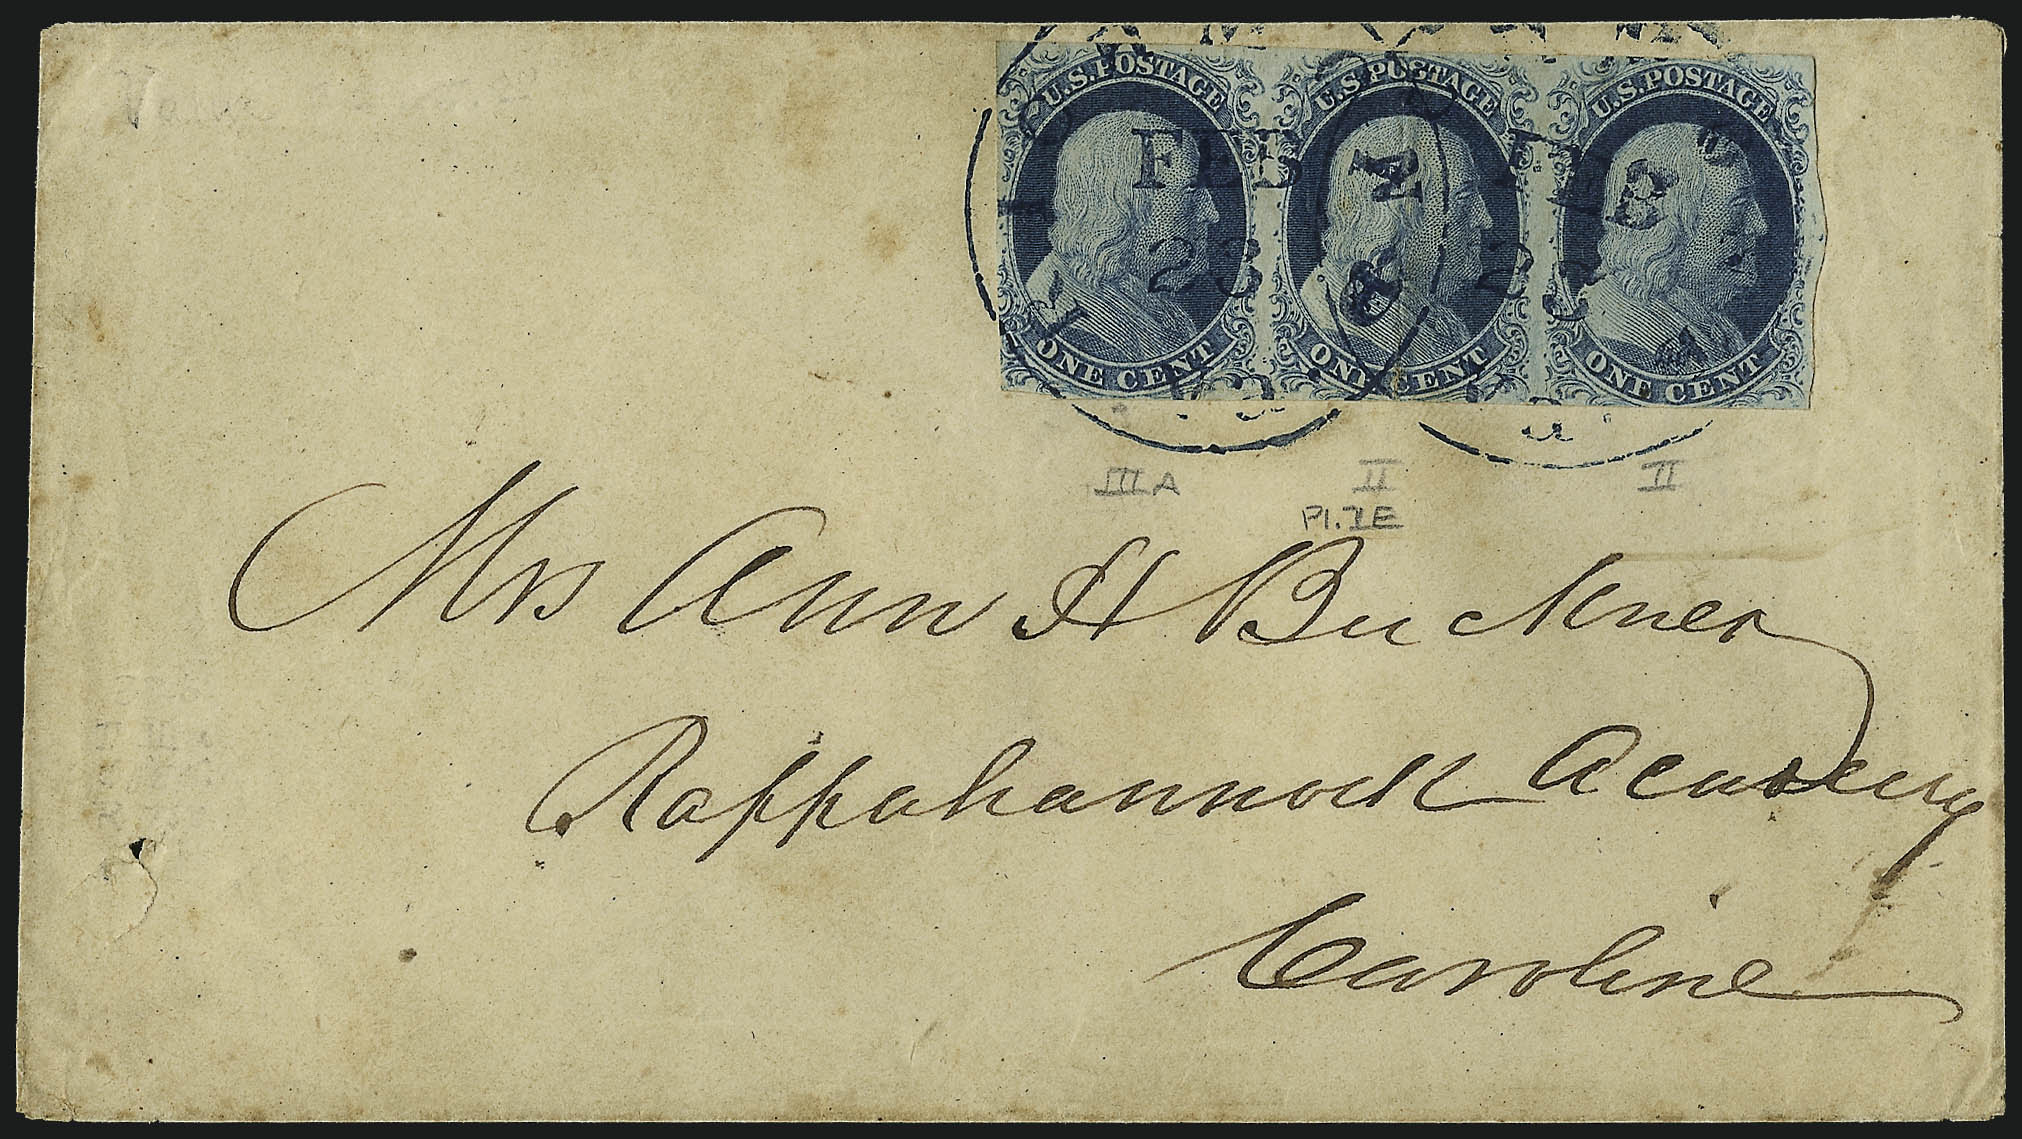 U.S. POSTAGE U.S. POSTAGE U.S. POSTAGE
FEB FEB
23
ONE CENT ONE CENT ONE CENT
Va.
III A II II
Pl. 1E
Mrs Ann H Buckner
Rappahannock Academy
Caroline